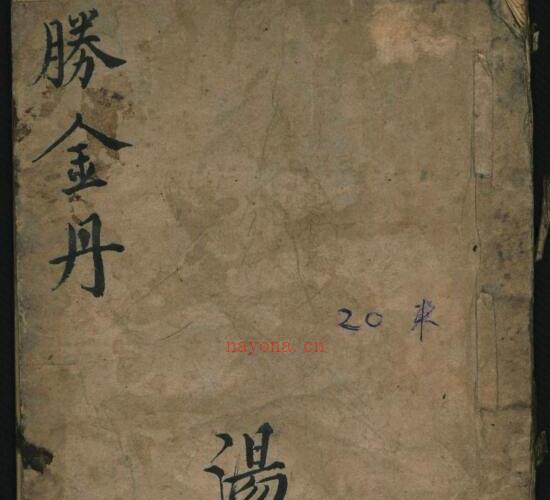 勝金丹
20 米
nayona.cn
湯